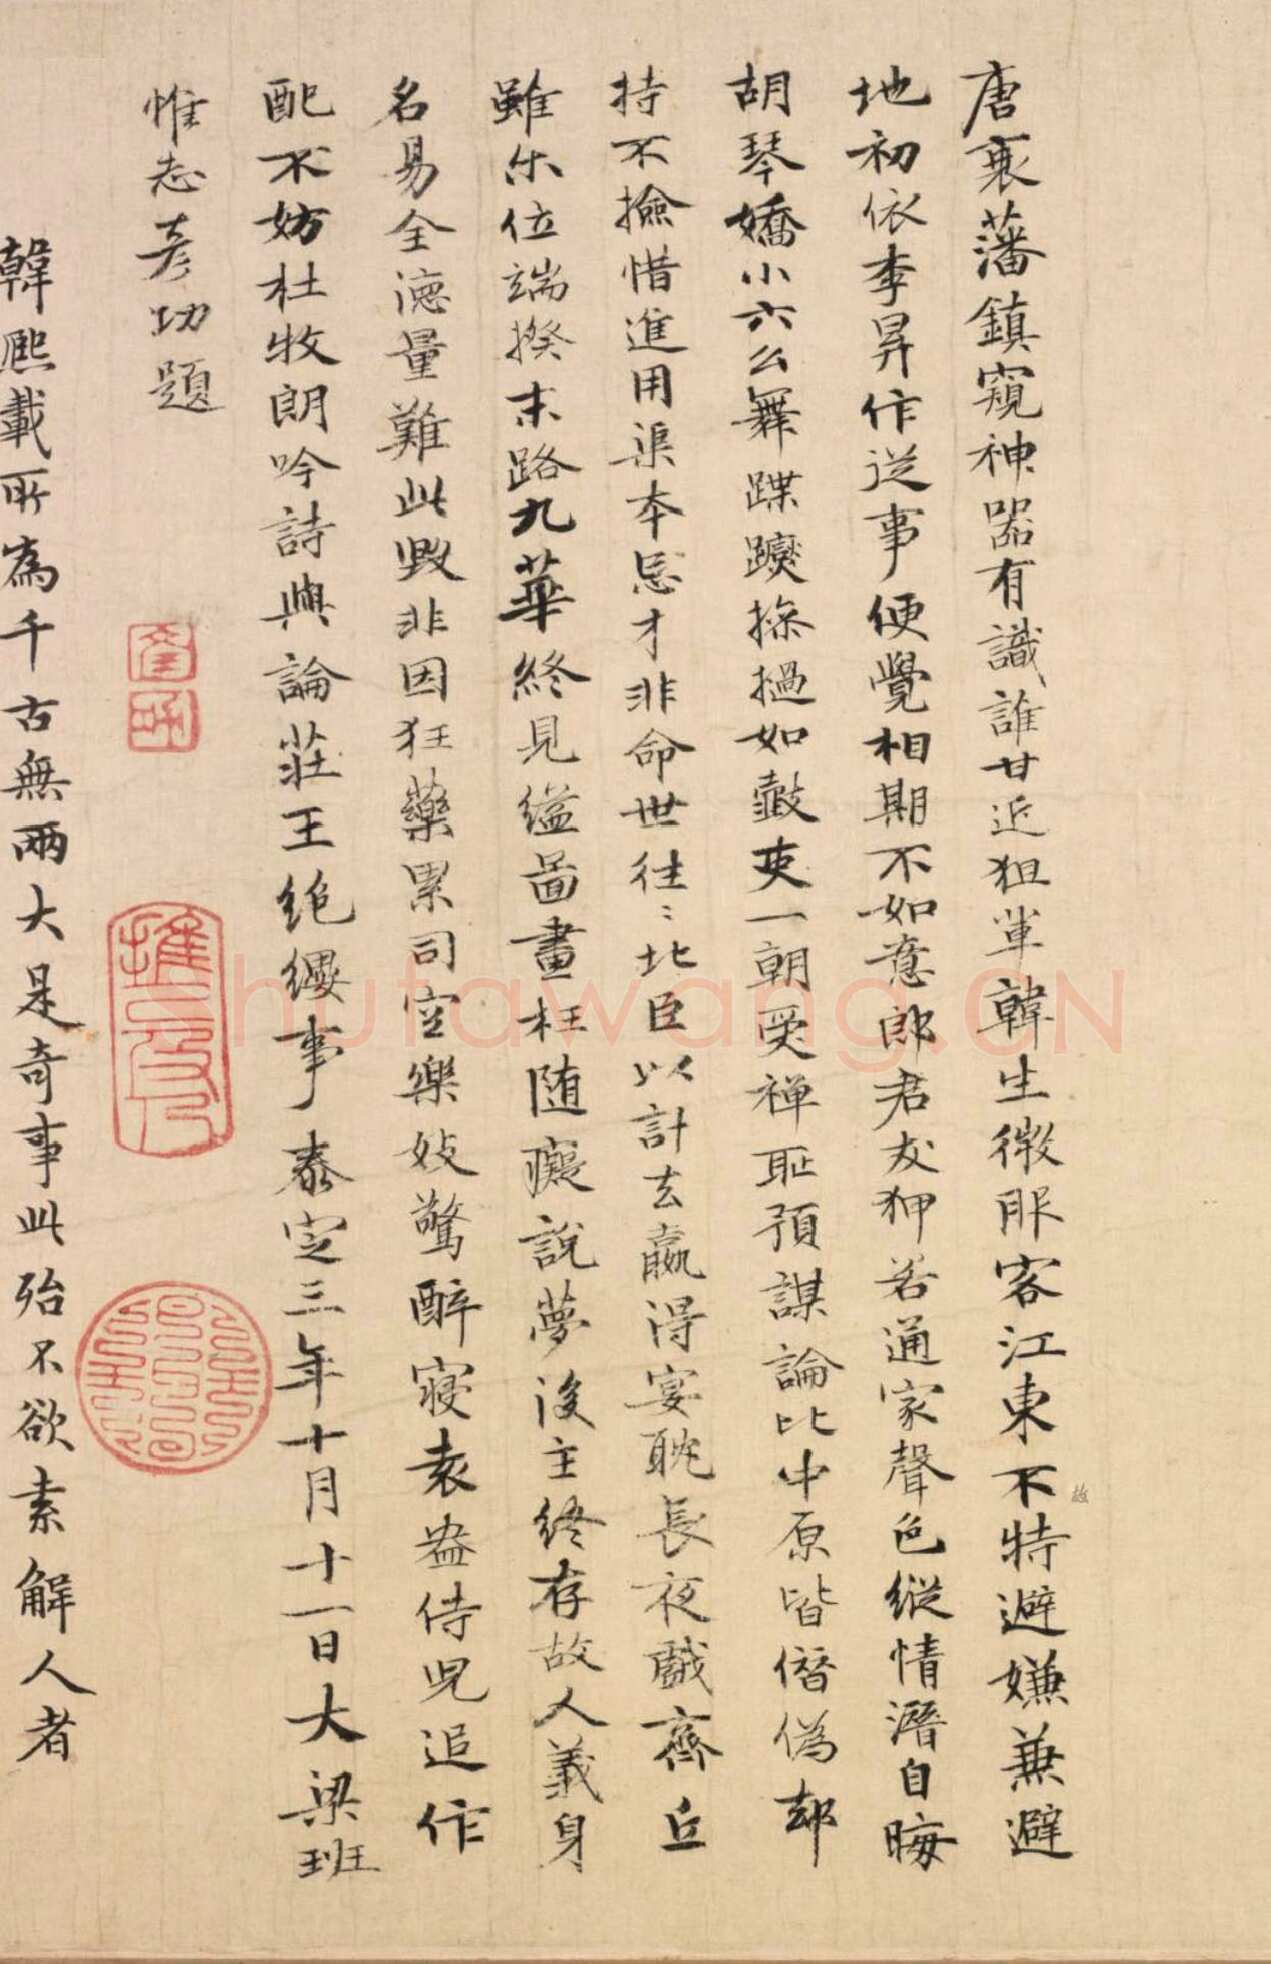 唐衰藩鎮窺神器有識誰甘近狙輩韓生微服客江東不特避嫌兼避
故
地初依李昇作從事便覺相期不如意郎君友狎若通家聲色縱情潛自晦
胡琴嬌小六么舞蹀躞摻撾如鼓吏一朝受禪恥預謀論比中原皆僭偽却
持不撿惜進用渠本忌才非命世往〻北臣以計去贏得宴耽長夜戲齊丘
雖尒位端揆末路九華終見縊圖畫枉随癡說夢後主終存故人義身
名易全德量難此毀非因狂藥累司空樂妓驚醉寢袁盎侍児追作
配不妨杜牧朗吟詩與論莊王絶纓事泰定三年十月十一日大梁班
惟志彦功題
韓熈載所為千古無兩大是奇事此殆不欲索解人者
shufawang.CN